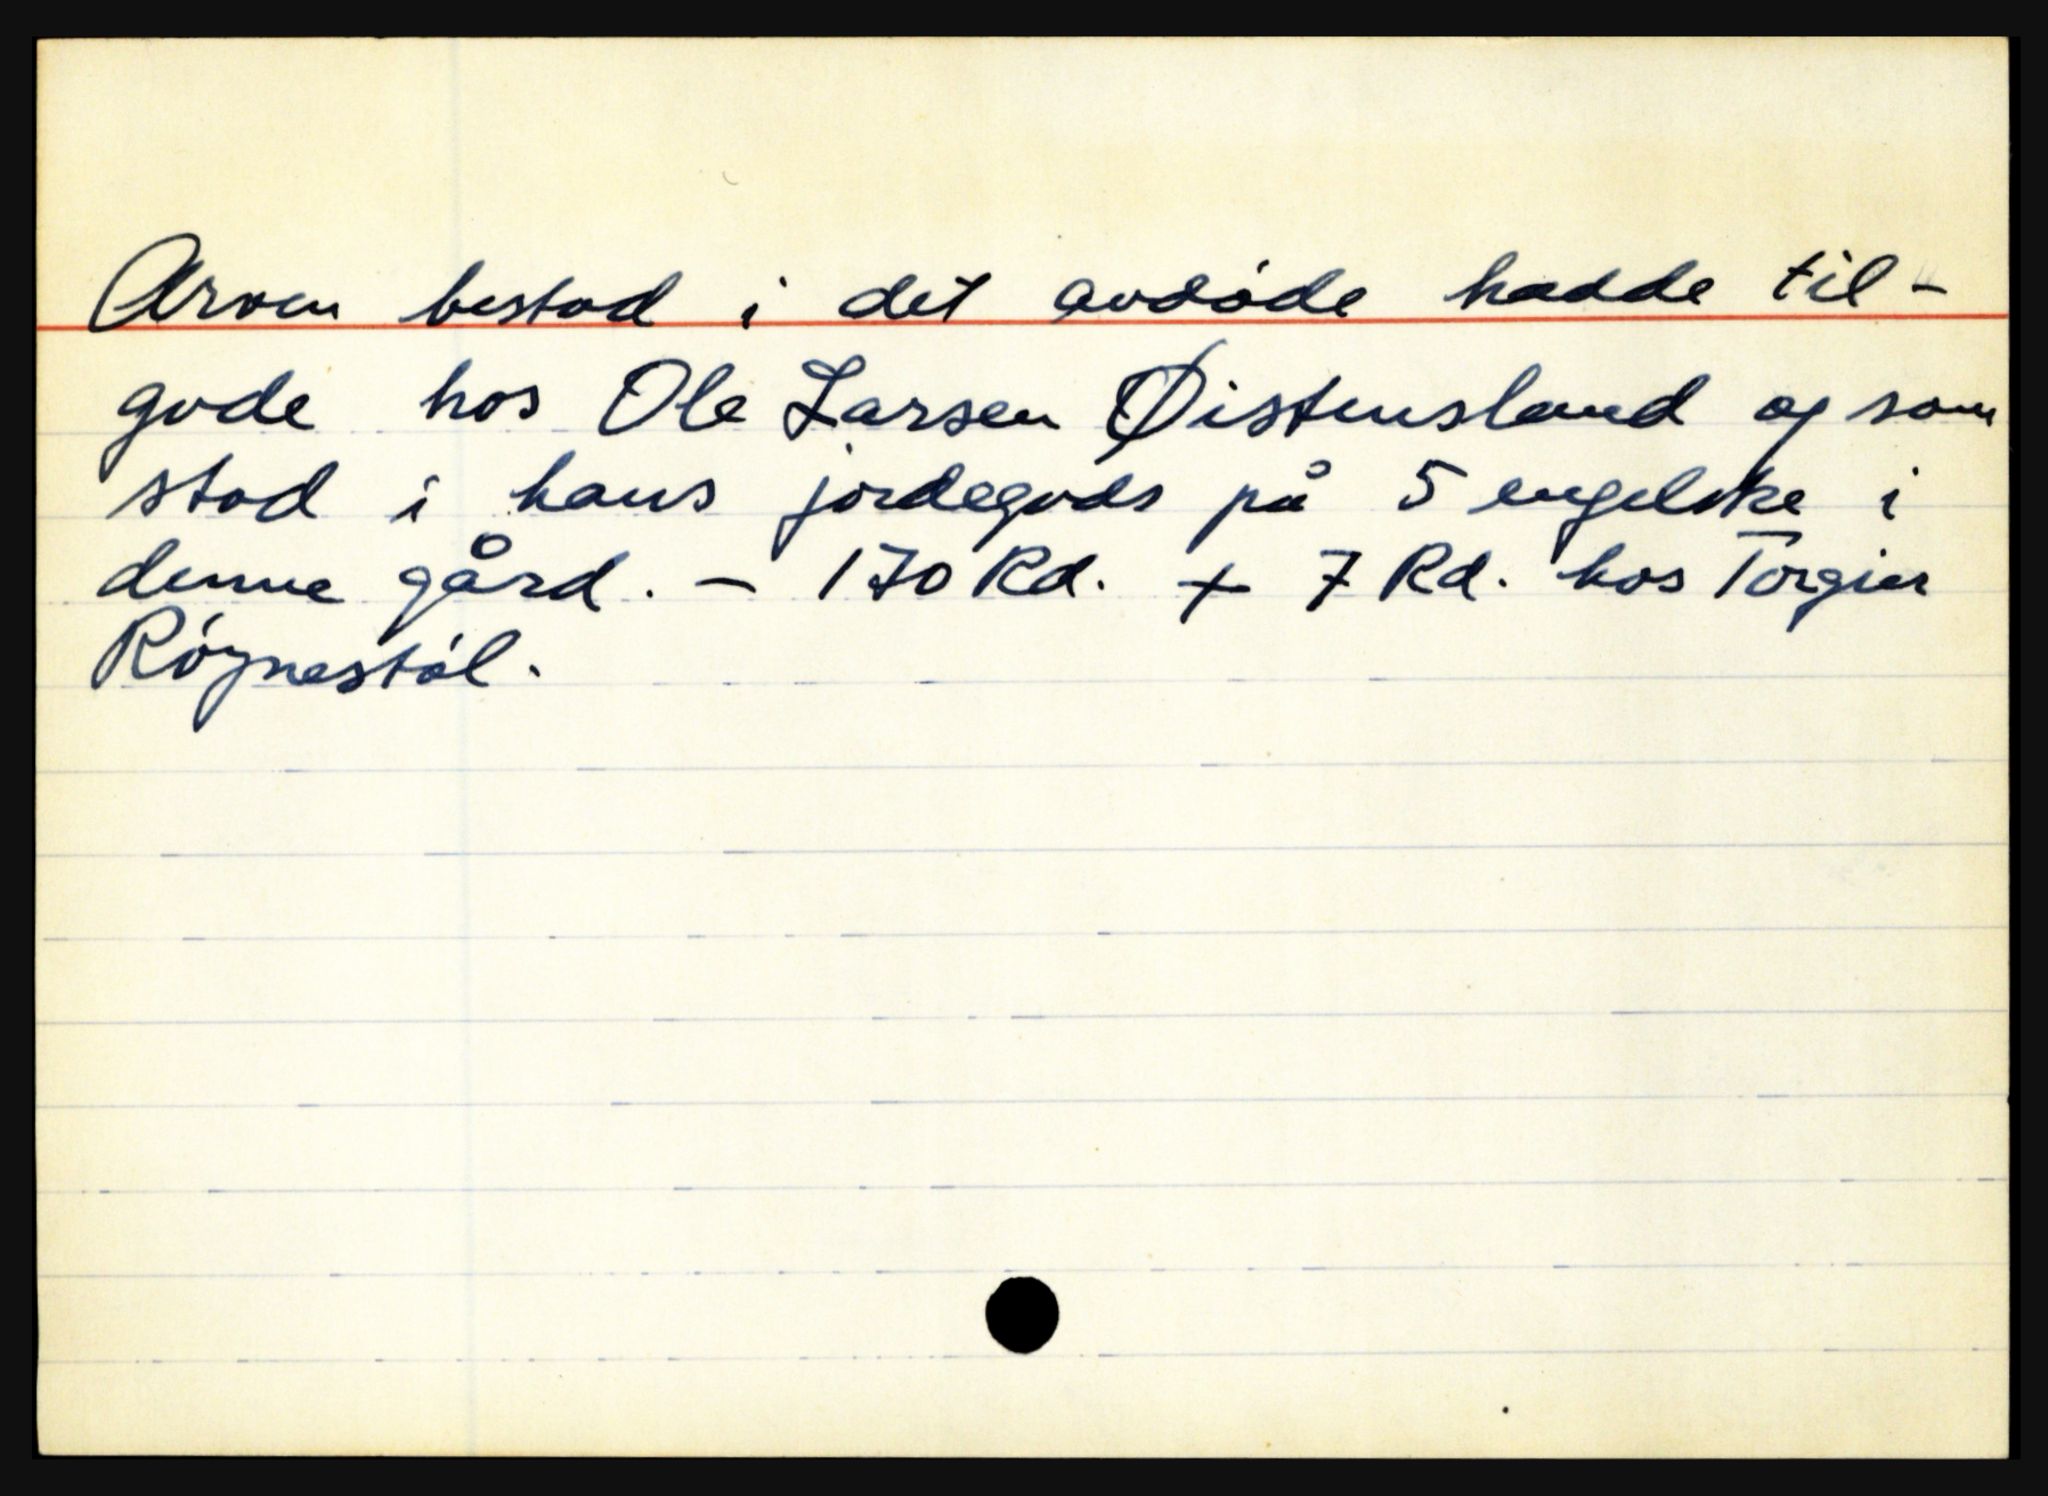 Arven bestod i det avdøde hadde til-
gode hos Ole Larsen Øistensland og som
stod i hans jordegods på 5 engelske i
denne gård. - 170 Rd. + 7 Rd. hos Torgier
Røynestøl.